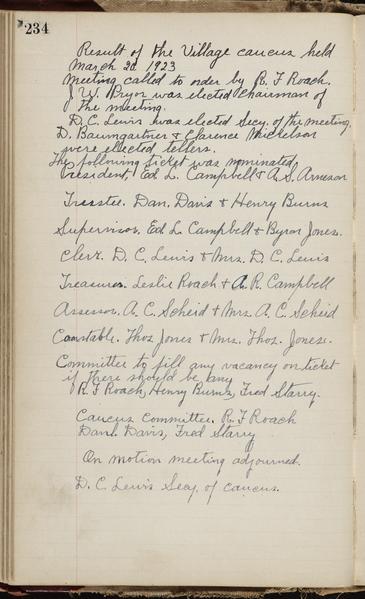 234
Result of the Village caucus held
March 2d 1923
Meeting called to order by R. F Roach.
J. W. Pryor was elected Chairman of
the meeting.
D. C. Lewis was elected Secy. of the meeting.
D. Baumgartner & Clarence Mickelson
were elected tellers.
The following ticket was nominated,
President, Ed L. Campbell & A. S. Arneson
Trustee. Dan. Davis & Henry Burns
Supervisor. Ed L Campbell & Byron Jones.
Clerk. D. C. Lewis & Mrs. D. C. Lewis
Treasurer. Leslie Roach & A. R. Campbell
Assessor. A. C. Scheid & Mrs A. C. Scheid
Constable. Thos Jones & Mrs. Thos. Jones.
Committee to fill any vacancy on ticket
if there should be any
R. F Roach, Henry Burns, Fred Starry.
Caucus Committee. R. F Roach
Danl. Davis, Fred Starry
On motion meeting adjourned.
D. C. Lewis Secy. of caucus.